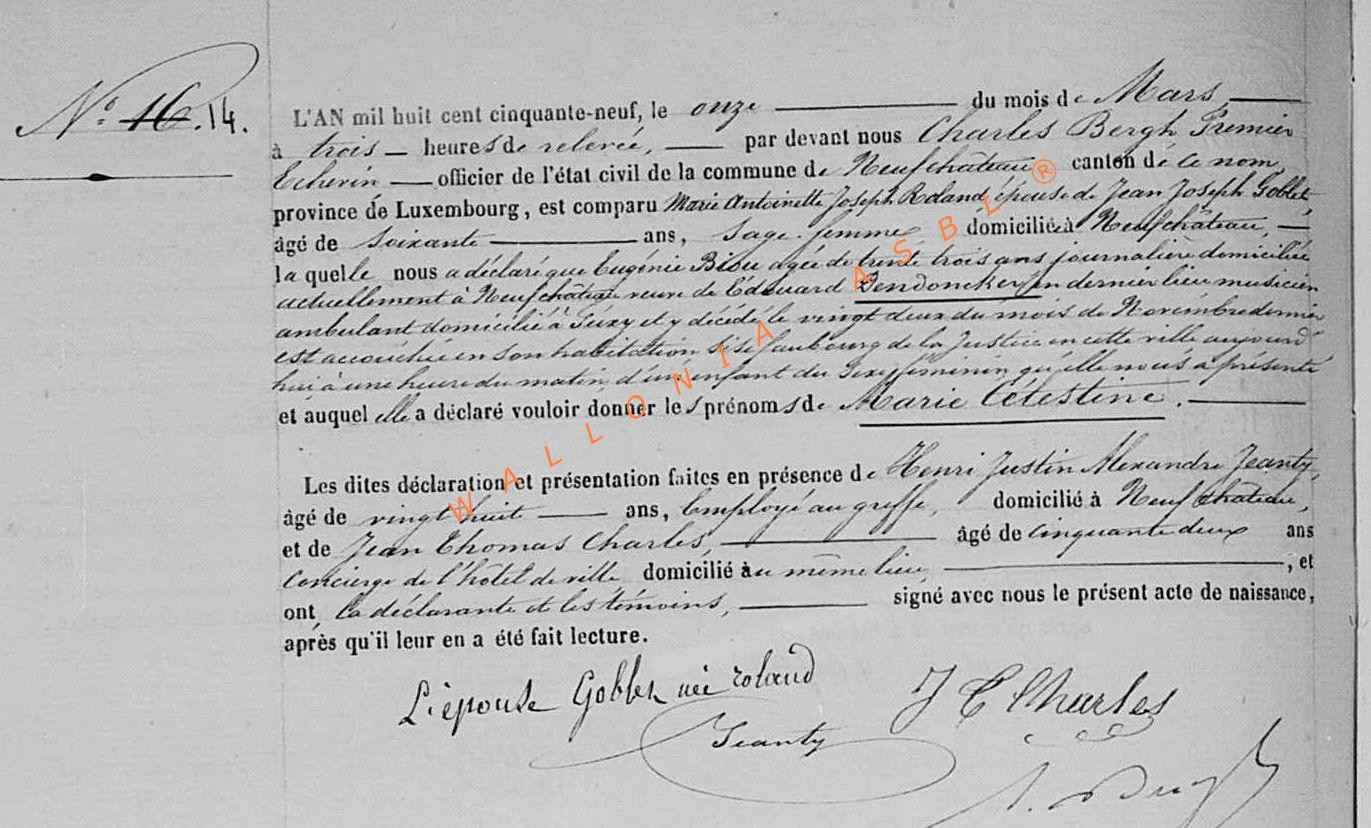 N° 16. 14.
L'AN mil huit cent cinquante-neuf, le onze du mois de Mars,
à trois heures de relevée, par devant nous Charles Bergh Premier
Echevin officier de l'état civil de la commune de Neufchâteau canton de ce nom,
province de Luxembourg, est comparu Marie Antoinette Joseph Roland épouse de Jean Joseph Goblet,
âgé de soixante ans, sage-femme domiciliée à Neufchâteau,
laquelle nous a déclaré que Eugénie Biou agée de trente trois ans journalière domiciliée
actuellement à Neufchâteau veuve de Edouard Dendoncker, en dernier lieu musicien
ambulant domicilié à et y décédé le vingt deux du mois de Novembre dernier
est accouchée en son habitation sise faubourg de la Justice en cette ville aujourd'
hui à une heure du matin, d'un enfant du sexe féminin qu'elle nous a présenté
et auquel elle a déclaré vouloir donner les prénoms de Marie Célestine.
Les dites déclaration et présentation faites en présence de Henri Justin Alexandre Jeanty,
âgé de vingt huit ans, Employé au greffe, domicilié à Neufchâteau,
et de Jean Thomas Charles, âgé de cinquante deux ans
concierge de l'hôtel de ville domicilié au même lieu, , et
ont, la déclarante et les témoins, signé avec nous le présent acte de naissance,
après qu'il leur en a été fait lecture.
L'épouse Goblet née roland
J T Charles
Jeanty
WALLONIA ASBL ®